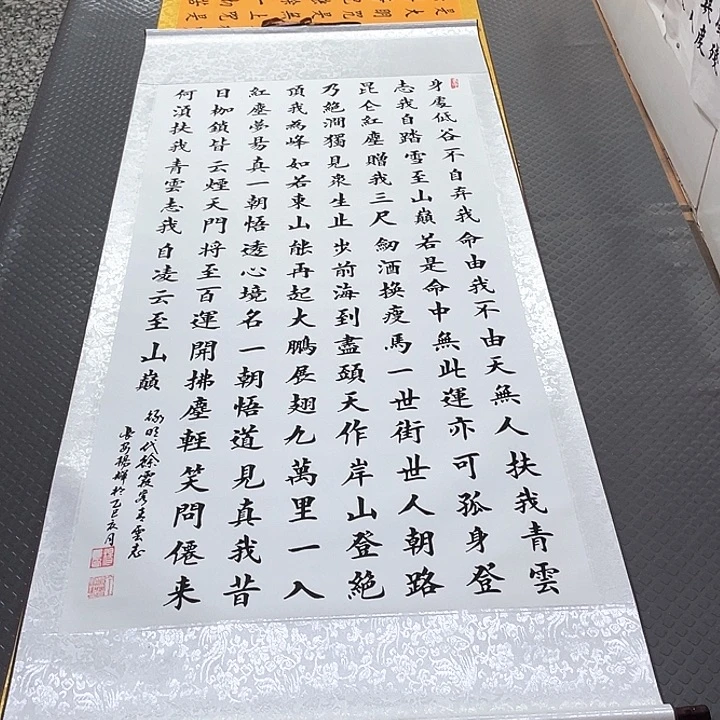 身處低谷不自弃我命由我不由天無人扶我青雲
志我自踏雪至山巔若是命中無此運亦可孤身登
昆仑紅塵贈我三尺劒酒換瘦馬一世街世人朝路
乃絕澗獨見衆生止步前海到盡頭天作岸山登絕
頂我為峰如若東山能再起大鵬展翅九萬里一入
紅塵夢易真一朝悟透心境名一朝悟道見真我昔
日枷鎖皆云煙天門將至百運開拂塵輕笑問僊来
何須扶我青雲志我自凌云至山巔
錄明代徐霞客青雲志
長安楊輝於乙巳月